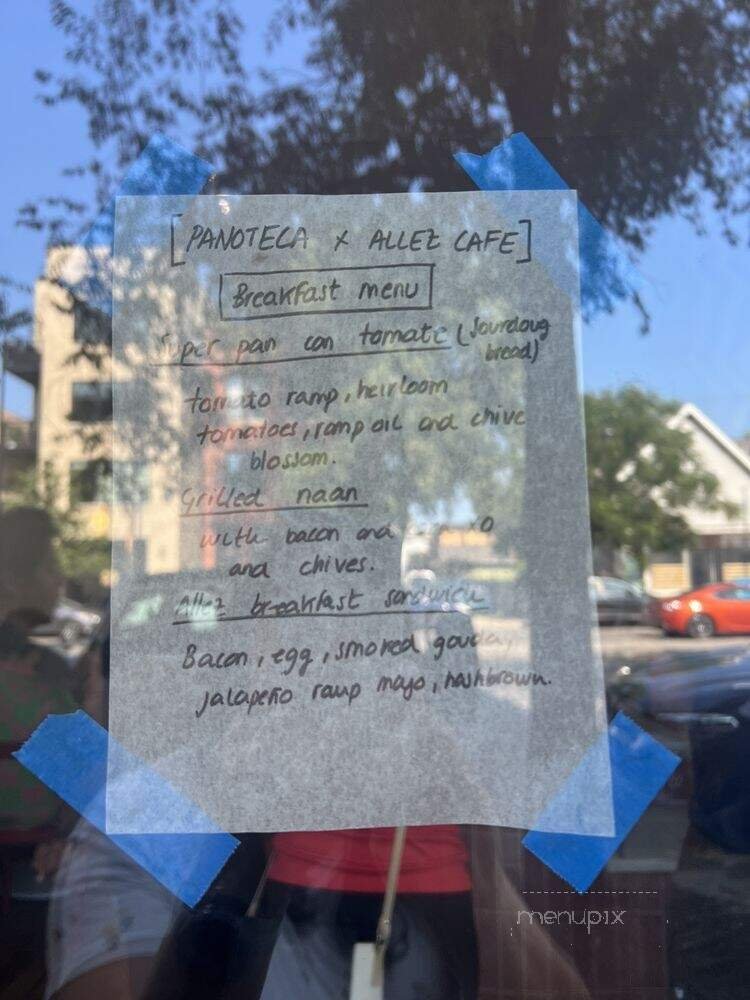 [PANOTECA X ALLEZ CAFE]
Breakfast menu
Super pan con tomate (Sourdoug
bread)
tomato ramp, heirloom
tomatoes, ramp oil and chive
blossom.
Grilled naan
with bacon and
and chives.
Allez breakfast sandwich
Bacon, egg, smoked gouda,
jalapeño ramp mayo, hashbrown.
menupix